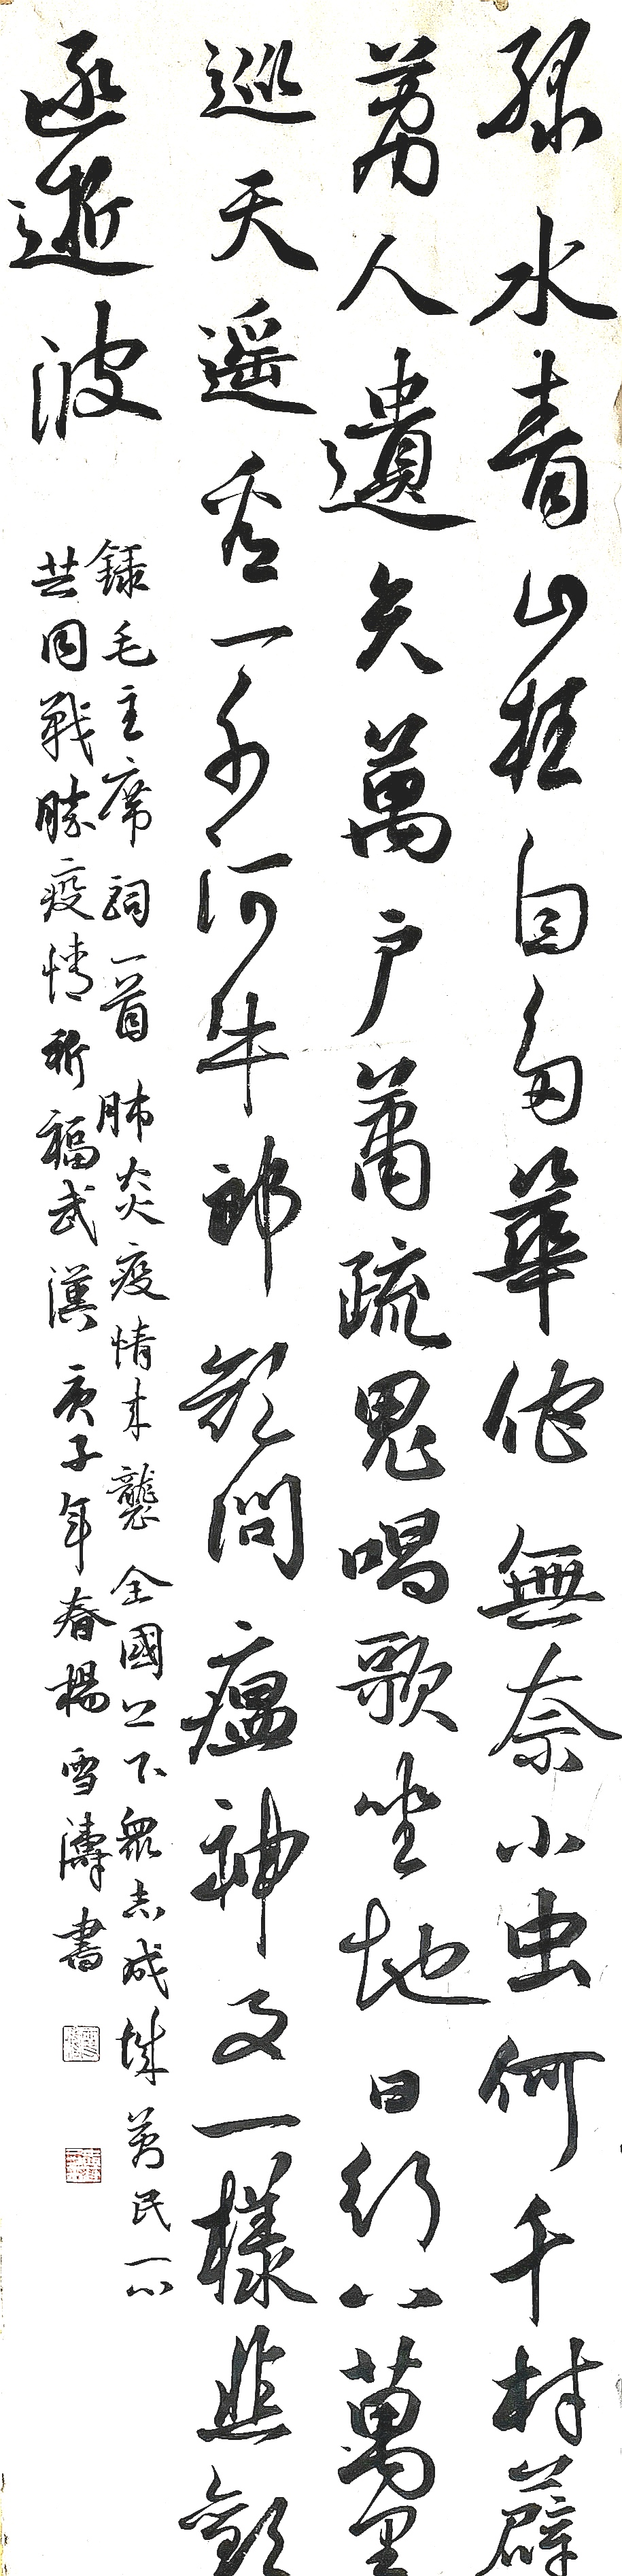 緑水青山枉自多華佗無奈小虫何千村薜
荔人遺矢萬户蕭疏鬼唱歌坐地日行八萬里
巡天遥看一千河牛郎欲問瘟神事一樣悲歡
逐逝波
録毛主席詞一首肺炎疫情来襲全國上下眾志成城萬民一心
共同戰勝疫情祈福武漢庚子年春楊雪濤書